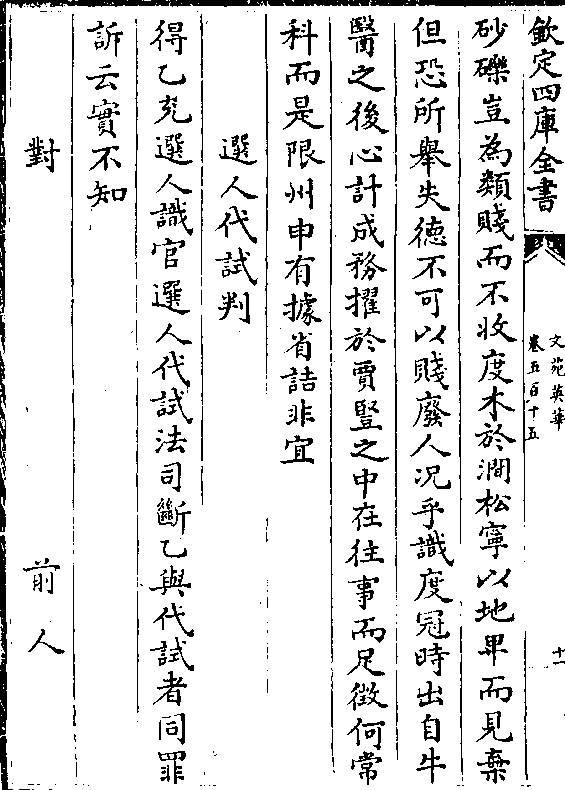 欽定四庫全書
文苑英華
卷五百十五
十一
砂礫豈為類賤而不收度木於澗松寧以地卑而見棄
但恐所舉失德不可以賤廢人况乎識度冠時出自牛
醫之後心計成務擢於賈豎之中在往事而足徵何常
科而是限州申有據省詰非宜
選人代試判
得乙充選人識官選人代試法司斷乙與代試者同罪
訴云實不知
對　前人